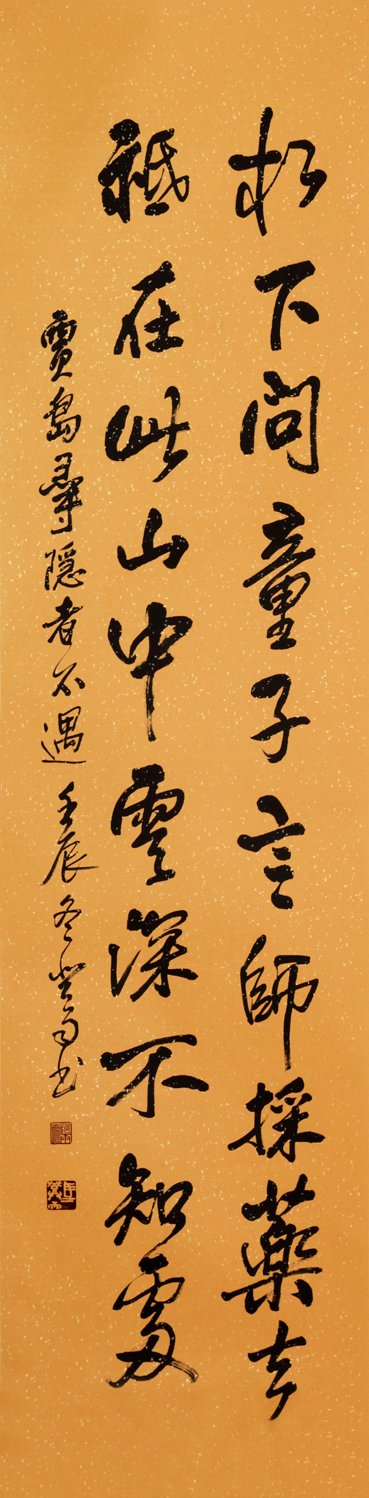 松下问童子言師採藥去
祗在此山中雲深不知處
賈島尋隱者不遇 壬辰冬